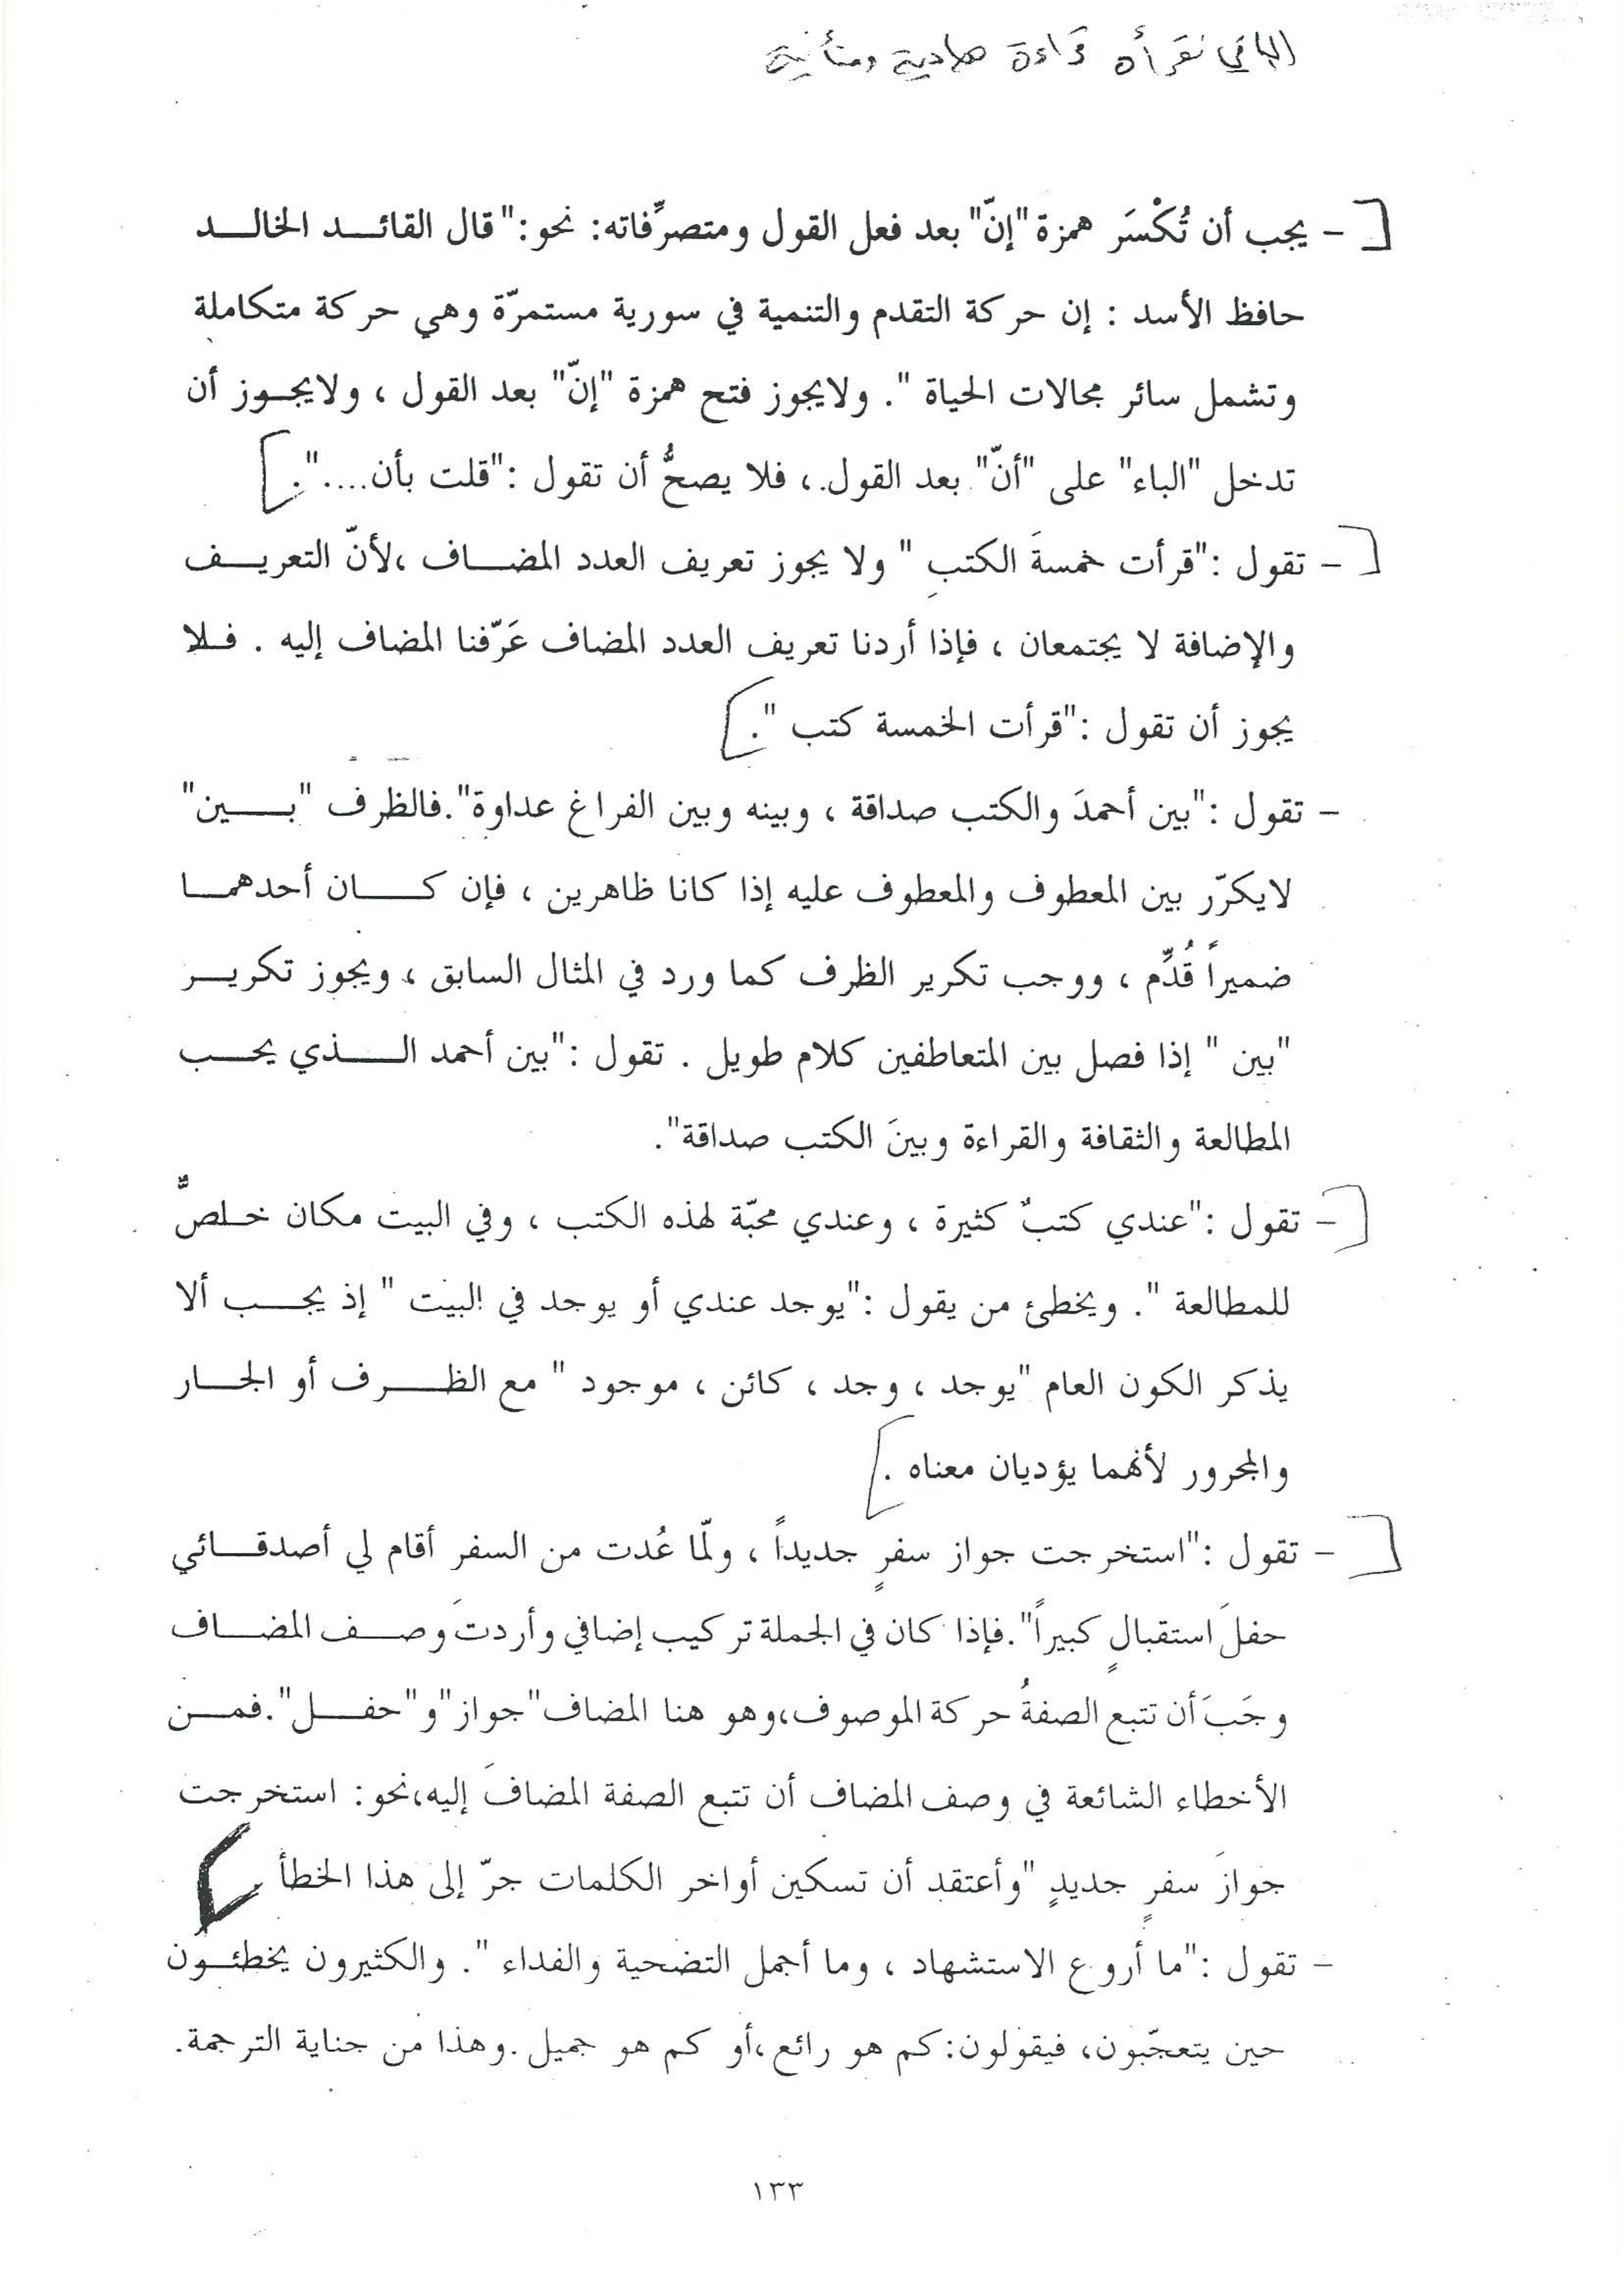 الباقي نقرأه قراءة هادية ومتأنية
- يجب أن تُكْسَر همزة "إنّ" بعد فعل القول ومتصرِّفاته: نحو: "قال القائد الخالد
حافظ الأسد : إن حركة التقدم والتنمية في سورية مستمرّة وهي حركة متكاملة
وتشمل سائر مجالات الحياة ". ولايجوز فتح همزة "إنّ" بعد القول ، ولايجوز أن
تدخل "الباء" على "أنّ" بعد القول ، فلا يصحُّ أن تقول :"قلت بأن....".
- تقول :"قرأت خمسةَ الكتبِ " ولا يجوز تعريف العدد المضاف ،لأنّ التعريف
والإضافة لا يجتمعان ، فإذا أردنا تعريف العدد المضاف عَرّفنا المضاف إليه . فلا
يجوز أن تقول :"قرأت الخمسة كتب ".
- تقول :"بين أحمدَ والكتب صداقة ، وبينه وبين الفراغ عداوة".فالظرف "بين"
لايكرّر بين المعطوف والمعطوف عليه إذا كانا ظاهرين ، فإن كان أحدهما
ضميراً قُدِّم ، ووجب تكرير الظرف كما ورد في المثال السابق ، ويجوز تكرير
"بين " إذا فصل بين المتعاطفين كلام طويل . تقول :"بين أحمد الذي يحب
المطالعة والثقافة والقراءة وبينَ الكتب صداقة".
- تقول :"عندي كتبٌ كثيرة ، وعندي محبّة لهذه الكتب ، وفي البيت مكان خاصٌّ
للمطالعة ". ويخطئ من يقول :"يوجد عندي أو يوجد في البيت " إذ يجب ألا
يذكر الكون العام "يوجد ، وجد ، كائن ، موجود " مع الظرف أو الجار
والمجرور لأنهما يؤديان معناه .
- تقول :"استخرجت جواز سفرٍ جديداً ، ولمّا عُدت من السفر أقام لي أصدقائي
حفلَ استقبالٍ كبيراً".فإذا كان في الجملة تركيب إضافي وأردتَ وصف المضاف
وجَبَ أن تتبع الصفةُ حركة الموصوف،وهو هنا المضاف"جواز"و"حفل".فمن
الأخطاء الشائعة في وصف المضاف أن تتبع الصفة المضافَ إليه،نحو: استخرجت
جوازَ سفرٍ جديدٍ "وأعتقد أن تسكين أواخر الكلمات جرّ إلى هذا الخطأ .
- تقول :"ما أروع الاستشهاد ، وما أجمل التضحية والفداء ". والكثيرون يخطئون
حين يتعجّبون، فيقولون: كم هو رائع،أو كم هو جميل .وهذا من جناية الترجمة.
١٣٣